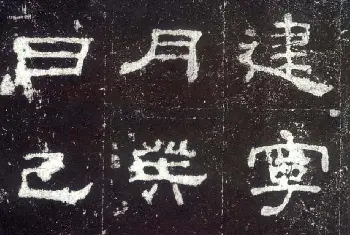 建寧
月癸
日己